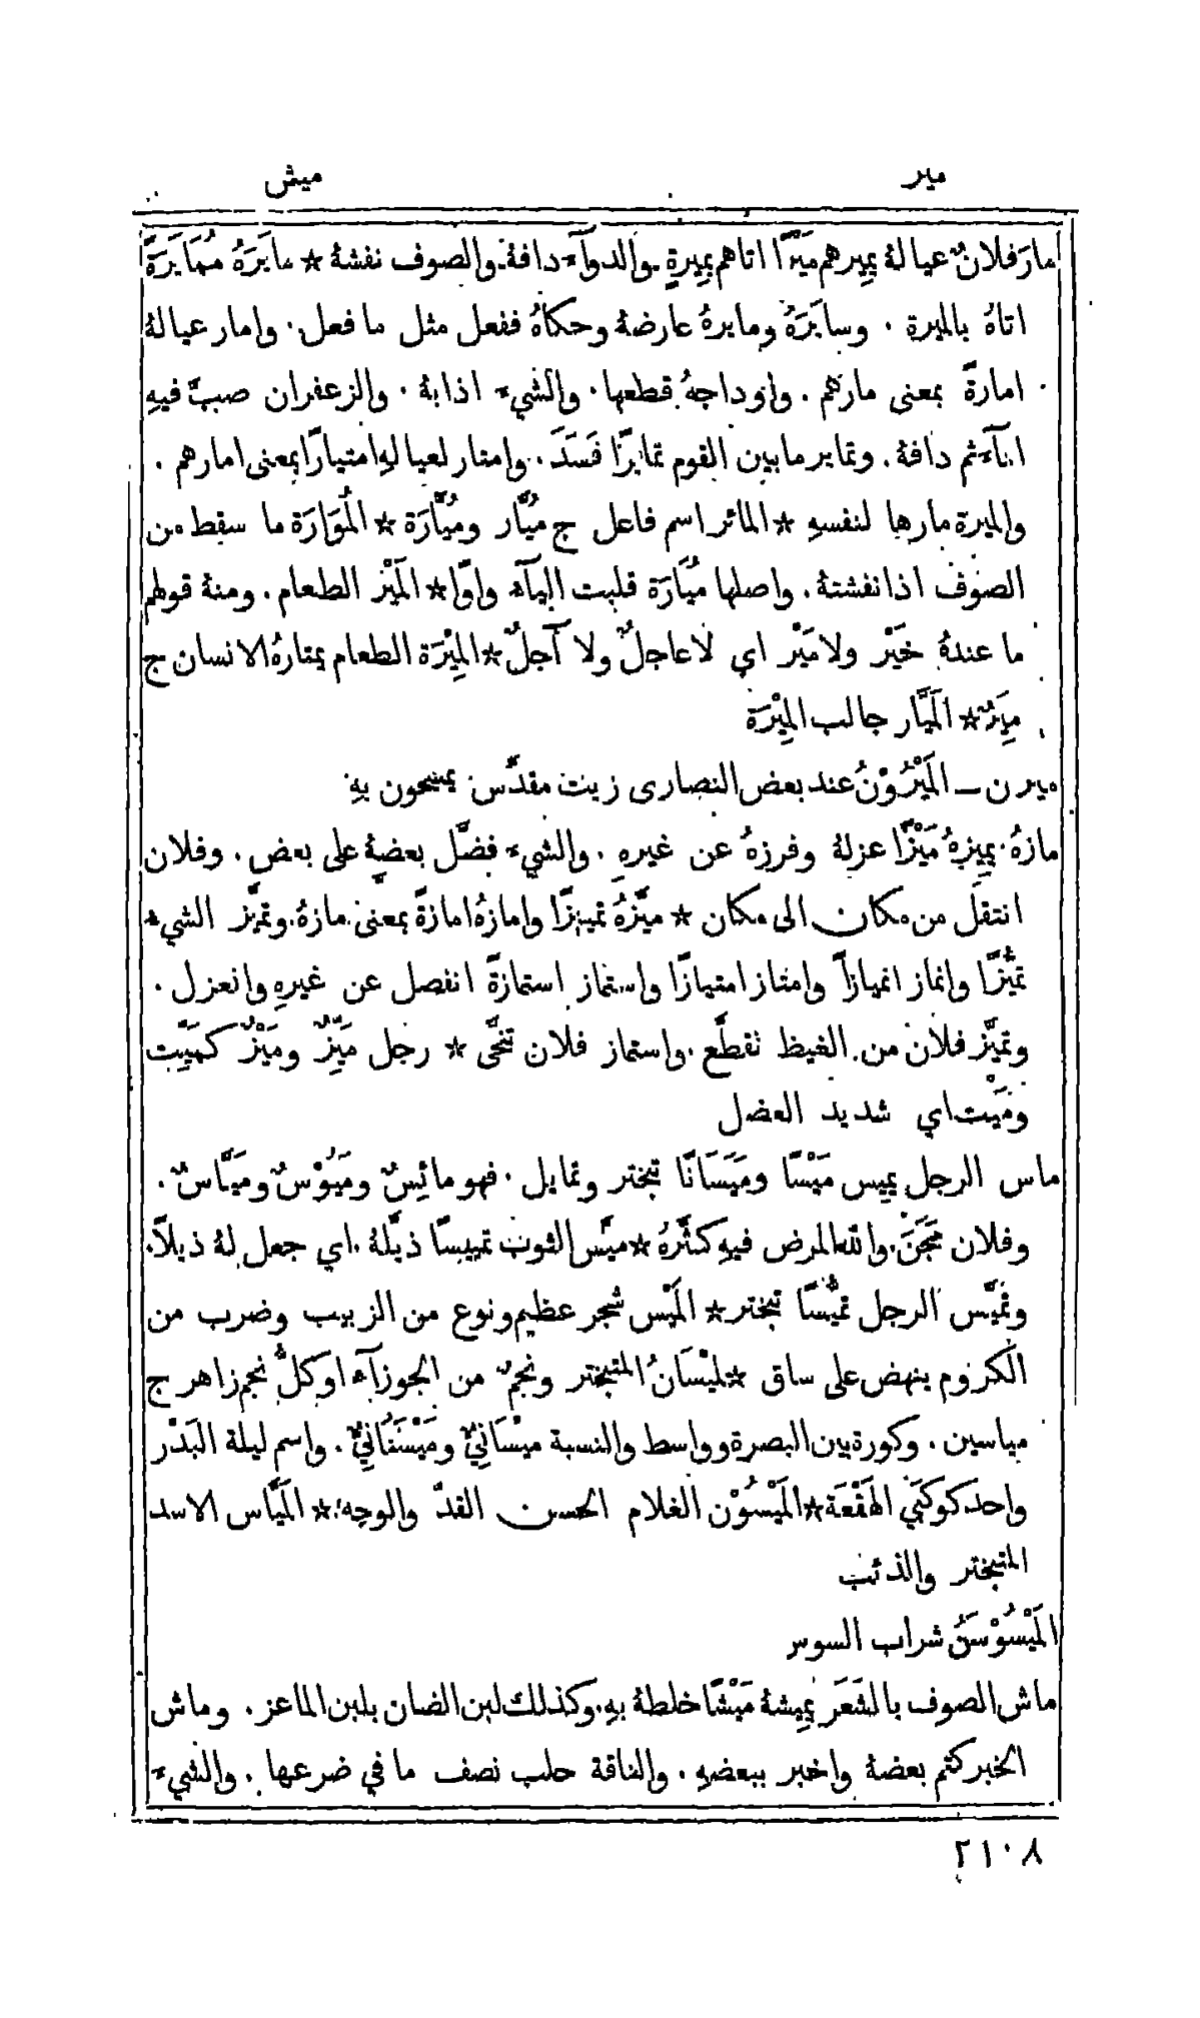 مير
ميش
مارَ فلانٌ عيالهُ يميرهم مَيْرًا اتاهم بِميرةٍ. والدوآءَ دافهُ. والصوف نفشهُ * مايَرَهُ مُمَايَرَةً
اتاهُ بالميرة . وسايَرَهُ ومايرهُ عارضهُ وحكاهُ ففعل مثل ما فعل . وامار عيالهُ
امارةً بمعنى مارهم . واوداجهُ قطعها . والشيءَ اذابهُ . والزعفران صبَّ فيهِ
المآءَ ثم دافهُ . وتماير ما بين القوم تمايُرًا فَسَدَ . وامتار لعيالهِ امتيارًا بمعنى امارهم .
والميرة مارها لنفسهِ * المائر اسم فاعل ج مُيَّار ومُيَّارَة * المُوَارَة ما سقط من
الصوف اذا نفشتهُ . واصلها مُيَارَة قلبت اليآء واوًا * المَيْر الطعام . ومنهُ قولهم
ما عندهُ خَيْر ولا مَيْر اي لا عاجلٌ ولا آجلٌ * المِيْرَة الطعام يمتارهُ الانسان ج
مِيَرٌ * المَيَّار جالب المِيْرَة
ميرن – المَيْرُوْنُ عند بعض النصارى زيت مقدَّس يمسحون بهِ
مازهُ يمِيزهُ مَيْزًا عزلهُ وفرزهُ عن غيرهِ . والشيءَ فضَّل بعضهُ على بعض . وفلان
انتقل من مكان الى مكان * ميَّزهُ تمييزًا وامازهُ امازةً بمعنى مازهُ . وتميَّز الشيءُ
تميُّزًا وانماز انميازًا وامتاز امتيازًا واستماز استمازةً انفصل عن غيرهِ وانعزل .
وتميَّز فلان من الغيظ تقطَّع . واستماز فلان تنحَّى * رجل مَيِّزٌ ومَيْزٌ كميِّت
ومَيْت اي شديد العضل
ماس الرجل يميس مَيْسًا ومَيَسَانًا تبختر وتمايل . فهو مائِسٌ ومَيُوْسٌ ومَيَّاسٌ .
وفلان مَجَنَ . والله المرض فيهِ كثَّرهُ * ميَّس الثوب تمييسًا ذيَّلهُ . اي جعل لهُ ذيلًا .
وتميَّس الرجل تميُّسًا تبختر * المَيْس شجر عظيم ونوع من الزبيب وضرب من
الكروم ينهض على ساق * المَيْسَانُ المتبختر ونجمٌ من الجوزآءِ او كلُّ نجم زاهر ج
مياسين . وكورة بين البصرة وواسط والنسبة ميْسَانِيٌّ ومَيْسَنَانِيٌّ . واسم ليلة البَدْر
واحد كوكبَي الهَقْعَة * المَيْسُوْن الغلام الحسن القدّ والوجه * المَيَّاس الاسد
المتبختر والذئب
المَيْسُوْسَنُ شراب السوس
ماش الصوف بالشعَر يميشهُ مَيْشًا خلطهُ بهِ . وكذلك لبن الضان بلبن الماعز . وماش
الخبر كتم بعضهُ واخبر ببعضهِ . والناقة حلب نصف ما في ضرعها . والشيءَ
٢١٠٨